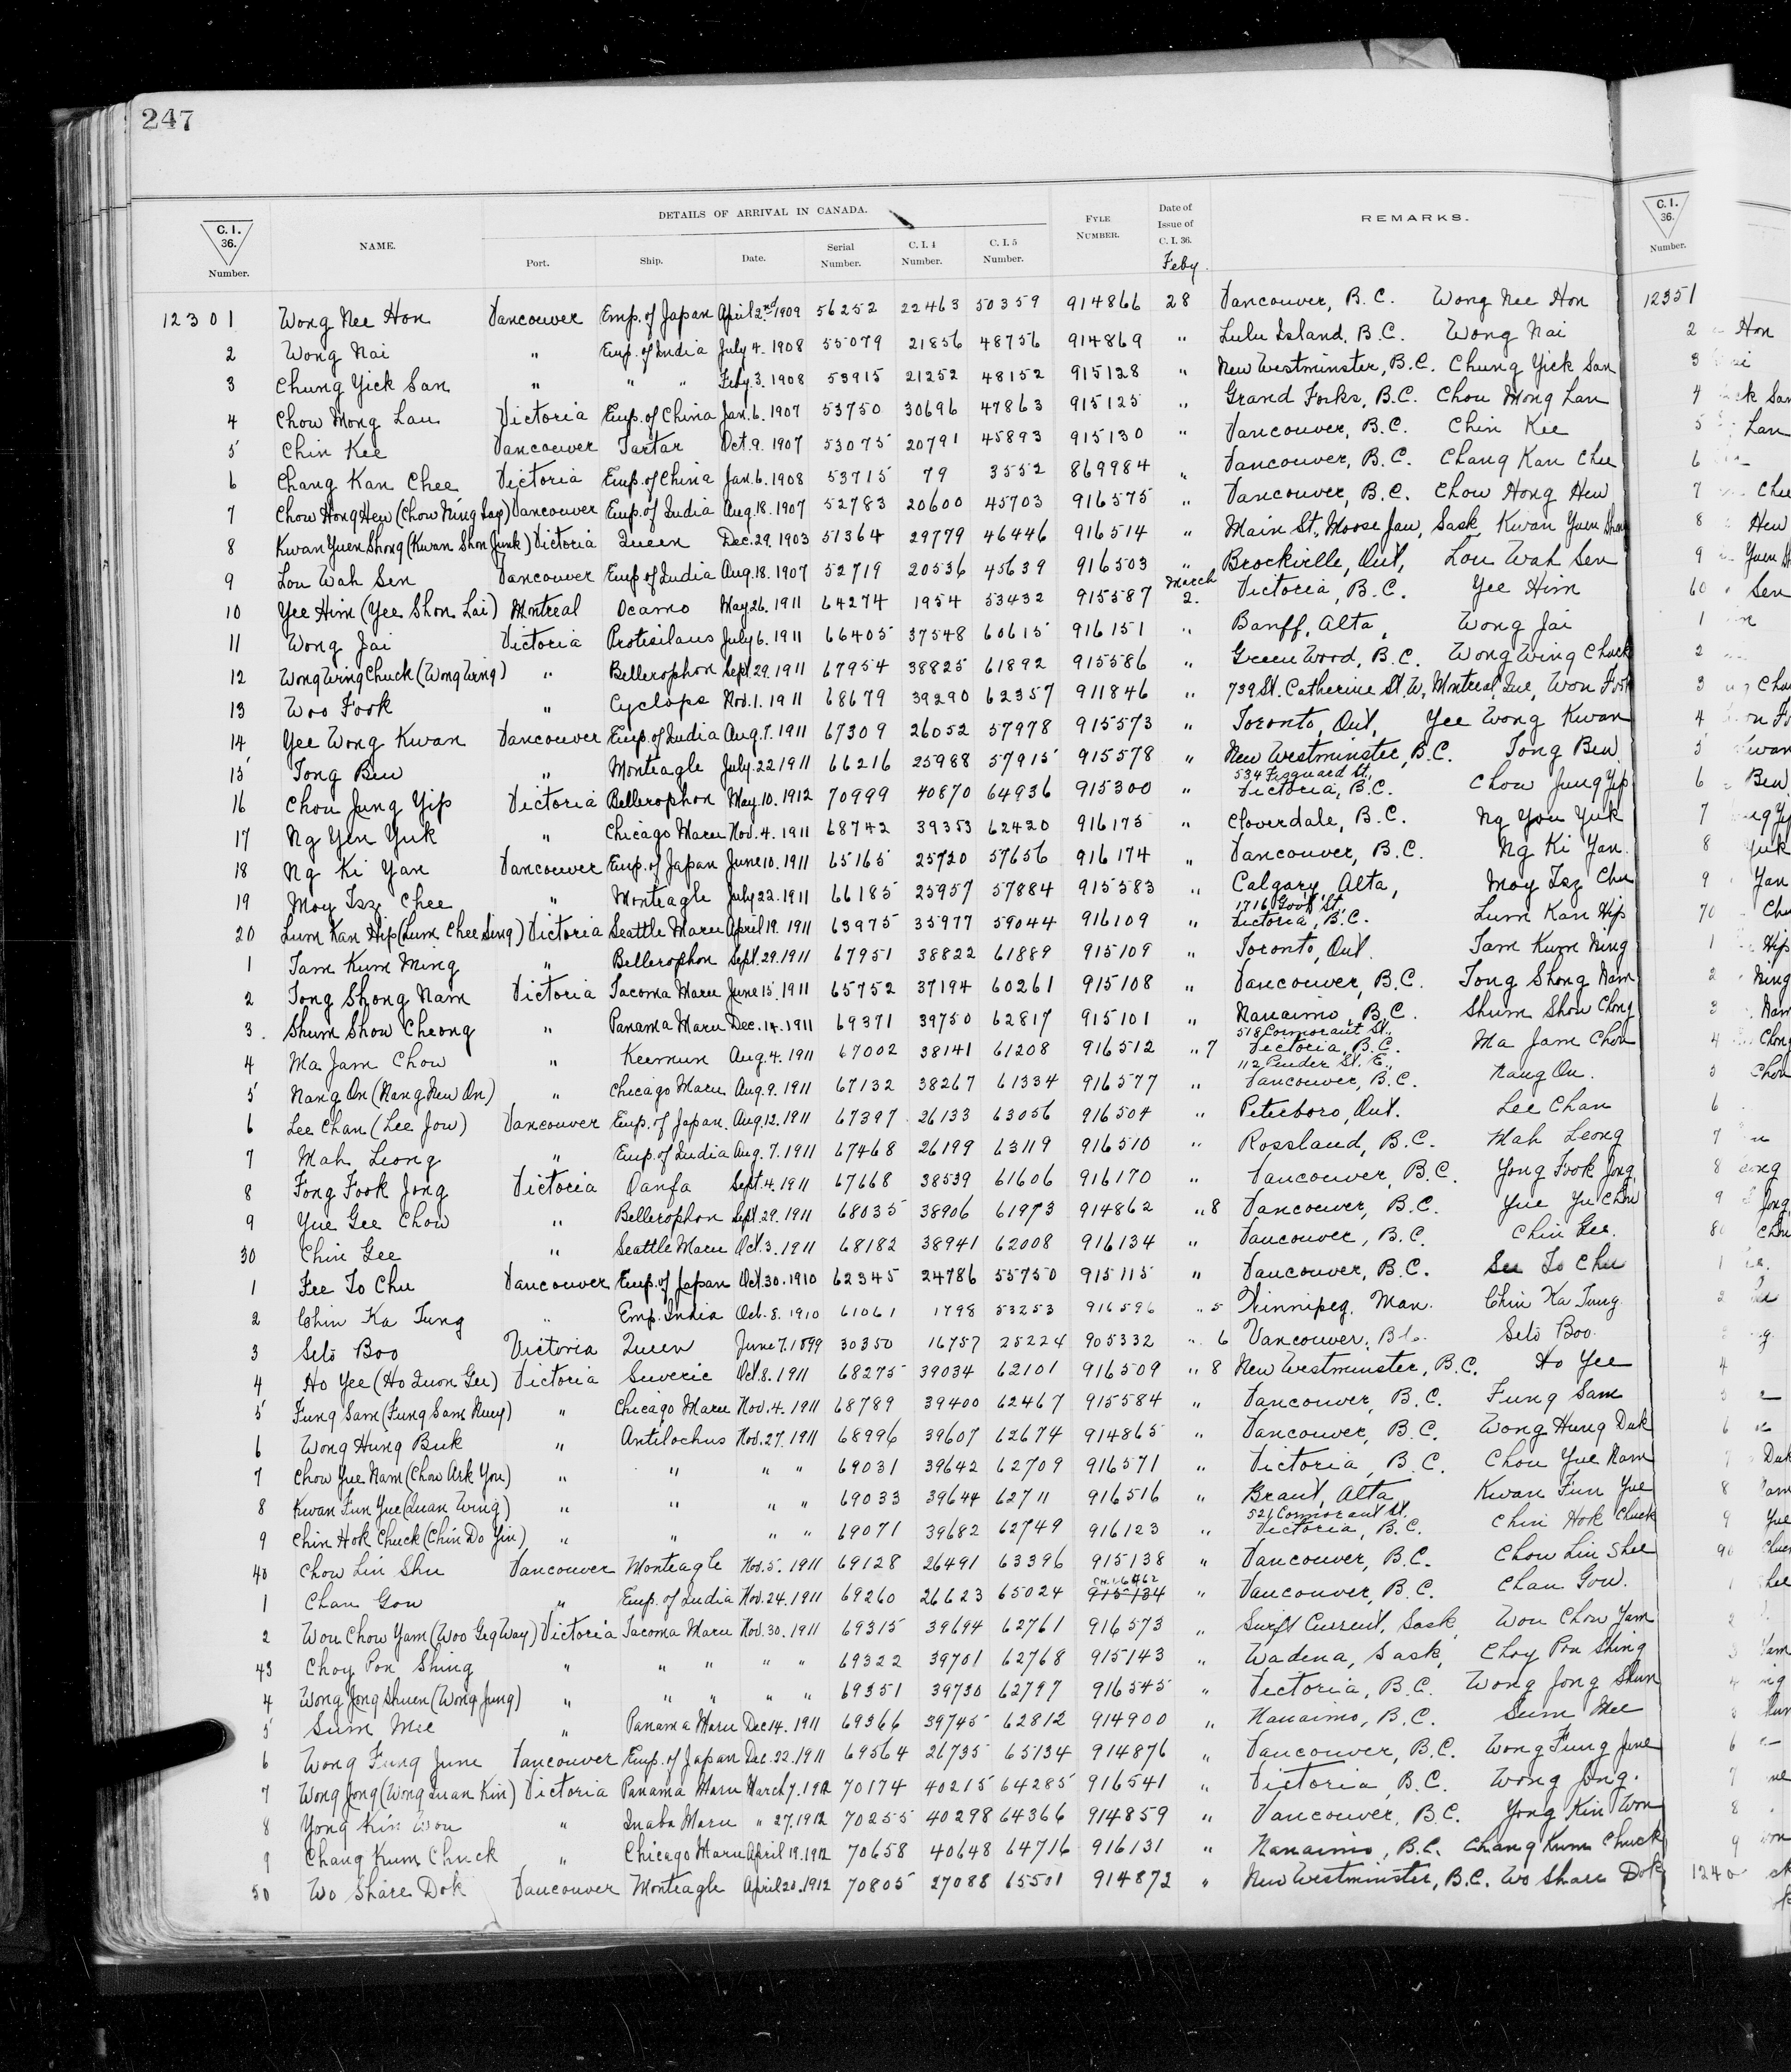 247
DETAILS OF ARRIVAL IN CANADA.
C. I. 36. Number. NAME. Port. Ship. Date. Serial Number. C. I. 4 Number. C. I. 5 Number. FYLE NUMBER. Date of Issue of C. I. 36. REMARKS. C. I. 36. Number.
Feby.
12301 Wong Nee Hon Vancouver Emp. of Japan April 2nd 1909 56252 22463 50359 914866 28 Vancouver, B.C. Wong Nee Hon 12351
2 Wong Nai " Emp. of India July 4. 1908 55079 21856 48756 914869 " Lulu Island, B.C. Wong Nai 2 Hon
3 Chung Yick San " " " Feby. 3. 1908 53915 21252 48152 915128 " New Westminster, B.C. Chung Yick San 3
4 Chow Mong Lau Victoria Emp. of China Jan. 6. 1907 53750 30696 47863 915125 " Grand Forks, B.C. Chow Mong Lau 4
5 Chin Kee Vancouver Tartar Oct. 9. 1907 53075 20791 45893 915130 " Vancouver, B.C. Chin Kee 5 Lan
6 Chang Kan Chee Victoria Emp. of China Jan. 6. 1908 53715 79 3552 869984 " Vancouver, B.C. Chang Kan Chee 6
7 Chow Hong Hew (Chow Ning Lap) Vancouver Emp. of India Aug. 18. 1907 52783 20600 45703 916575 " Vancouver, B.C. Chow Hong Hew 7
8 Kwan Yuen Shong (Kwan Shon Junk) Victoria Queen Dec. 29. 1903 51364 29779 46446 916514 " Main St., Moose Jaw, Sask. Kwan Yuen Shong 8 Hew
9 Lou Wah Sen Vancouver Emp of India Aug. 18. 1907 52719 20536 45639 916503 " Brockville, Ont, Lou Wah Sen 9 Yuen
March
10 Yee Him (Yee Shon Lai) Montreal Ocamo May 26. 1911 64274 1954 53432 915587 2. Victoria, B.C. Yee Him 60 Sen
11 Wong Jai Victoria Protisilaus July 6. 1911 66405 37548 60615 916151 " Banff, Alta, Wong Jai 1
12 Wong Wing Chuck (Wong Wing) " Bellerophon Sept. 29. 1911 67954 38825 61892 915586 " Green Wood, B.C. Wong Wing Chuck 2
13 Woo Fook " Cyclops Nov. 1. 1911 68679 39290 62357 911846 " 739 St. Catherine St. W, Montreal, Que, Won Fook 3
14 Yee Wong Kwan Vancouver Emp. of India Aug. 7. 1911 67309 26052 57978 915573 " Toronto, Ont, Yee Wong Kwan 4
15 Tong Bew " Monteagle July. 22 1911 66216 25988 57915 915578 " New Westminster, B.C. Tong Bew 5
534 Fisguard St.,
16 Chou Jung Yip Victoria Bellerophon May. 10. 1912 70999 40870 64936 915300 " Victoria, B.C. Chow Jung Yip 6 Bew
17 Ng Yen Yuk " Chicago Maru Nov. 4. 1911 68742 39353 62420 916175 " Cloverdale, B.C. Ng You Yuk 7
18 Ng Ki Yan Vancouver Emp. of Japan June 10. 1911 65165 25720 57656 916174 " Vancouver, B.C. Ng Ki Yan. 8 Yuk
19 Moy Tsz Chee " Monteagle July 22. 1911 66185 25957 57884 915583 " Calgary, Alta, Moy Tsz Chee 9 Yan
1716 Gov't St,
20 Lum Kan Hip (Lum Chee Sing) Victoria Seattle Maru April 19. 1911 63975 35977 59044 916109 " Victoria, B.C. Lum Kan Hip 70
1 Tam Kum Ming " Bellerophon Sept. 29. 1911 67951 38822 61889 915109 " Toronto, Ont. Tam Kum Ning 1 Hip
2 Tong Shong Nam Victoria Tacoma Maru June 15. 1911 65752 37194 60261 915108 " Vancouver, B.C. Tong Shong Nam 2 Ning
3. Shum Show Cheong " Panama Maru Dec. 14. 1911 69371 39750 62817 915101 " Nanaimo, B.C. Shum Show Chong 3 Nam
518 Cormorant St.,
4 Ma Jam Chow " Keemun Aug. 4. 1911 67002 38141 61208 916512 " 7 Victoria, B.C. Ma Jam Chou 4 Chong
112 Pender St. E.,
5 Nang On (Nang New On) " Chicago Maru Aug. 9. 1911 67132 38267 61334 916577 " Vancouver, B.C. Nang On. 5 Chou
6 Lee Chan (Lee Jow) Vancouver Emp. of Japan. Aug. 12. 1911 67397 26133 63056 916504 " Peterboro, Ont. Lee Chan 6
7 Mah Leong " Emp. of India Aug. 7. 1911 67468 26199 63119 916510 " Rossland, B.C. Mah Leong 7
8 Fong Fook Jong Victoria Oanfa Sept. 4. 1911 67668 38539 61606 916170 " Vancouver, B.C. Yong Fook Jong 8
9 Yue Gee Chow " Bellerophon Sept. 29. 1911 68035 38906 61973 914862 " 8 Vancouver, B.C. Yue Yu Chow 9 Jong
30 Chin Gee " Seattle Maru Oct. 3. 1911 68182 38941 62008 916134 " Vancouver, B.C. Chin Gee. 80
1 Fee To Chu Vancouver Emp. of Japan Oct. 30. 1910 62345 24786 55750 915115 " Vancouver, B.C. See To Chu 1
2 Chin Ka Tung " Emp. India Oct. 8. 1910 61061 1798 53253 916596 " 5 Winnipeg. Man. Chin Ka Tung. 2
3 Seto Boo Victoria Queen June 7. 1899 30350 16757 25224 905332 " 6 Vancouver, B.C. Seto Boo
4 Ho Yee (Ho Quon Gee) Victoria Suveric Oct. 8. 1911 68275 39034 62101 916509 " 8 New Westminster, B.C. Ho Yee 4
5 Fung Sam (Fung Sam Nuey) " Chicago Maru Nov. 4. 1911 68789 39400 62467 915584 " Vancouver, B.C. Fung Sam
6 Wong Hung Buk " Antilochus Nov. 27. 1911 68996 39607 62674 914865 " Vancouver, B.C. Wong Hung Duk 6
7 Chow Yue Nam (Chow Ark You) " " " " 69031 39642 62709 916571 " Victoria, B.C. Chou Yue Nam 7 Duk
8 Kwan Fun Yue (Quan Wing) " " " " 69033 39644 62711 916516 " Brant, Alta Kwan Fun Yue 8
521 Cormorant St.
9 Chin Hok Chuck (Chin Do Yin) " " " " 69071 39682 62749 916123 " Victoria, B.C. Chin Hok Chuck 9 Yue
40 Chow Lin Shu Vancouver Monteagle Nov. 5. 1911 69128 26491 63396 915138 " Vancouver, B.C. Chow Lin Shee 90
1 Chan Gow " Emp. of India Nov. 24. 1911 69260 26623 65024 915134 " Vancouver, B.C. Chan Gow.
2 Wou Chow Yam (Woo Geg Way) Victoria Tacoma Maru Nov. 30. 1911 69315 39694 62761 916573 " Swift Current, Sask, Wou Chow Yam 2
43 Choy Pon Shing " " " " " 69322 39701 62768 915143 " Wadena, Sask, Choy Pon Shing 3
4 Wong Jong Shuen (Wong Jung) " " " " " 69351 39730 62797 916545 " Victoria, B.C. Wong Jong Shun 4
5 Sum Mee " Panama Maru Dec 14. 1911 69366 39745 62812 914900 " Nanaimo, B.C. Sum Mee
6 Wong Fung June Vancouver Emp. of Japan Dec. 22. 1911 69564 26735 65134 914876 " Vancouver, B.C. Wong Fung June 6
7 Wong Jong (Wong Quan Kin) Victoria Panama Maru March 7. 1912 70174 40215 64285 916541 " Victoria, B.C. Wong Jong. 7
8 Yong Kin Won " Inaba Maru " 27. 1912 70255 40298 64366 914859 " Vancouver, B.C. Yong Kin Won 8
9 Chang Kum Chuck " Chicago Maru April 19. 1912 70658 40648 64716 916131 " Nanaimo, B.C. Chang Kum Chuck 9
50 Wo Share Dok Vancouver Monteagle April 20. 1912 70805 27088 65501 914872 " New Westminster, B.C. Wo Share Dok 1240